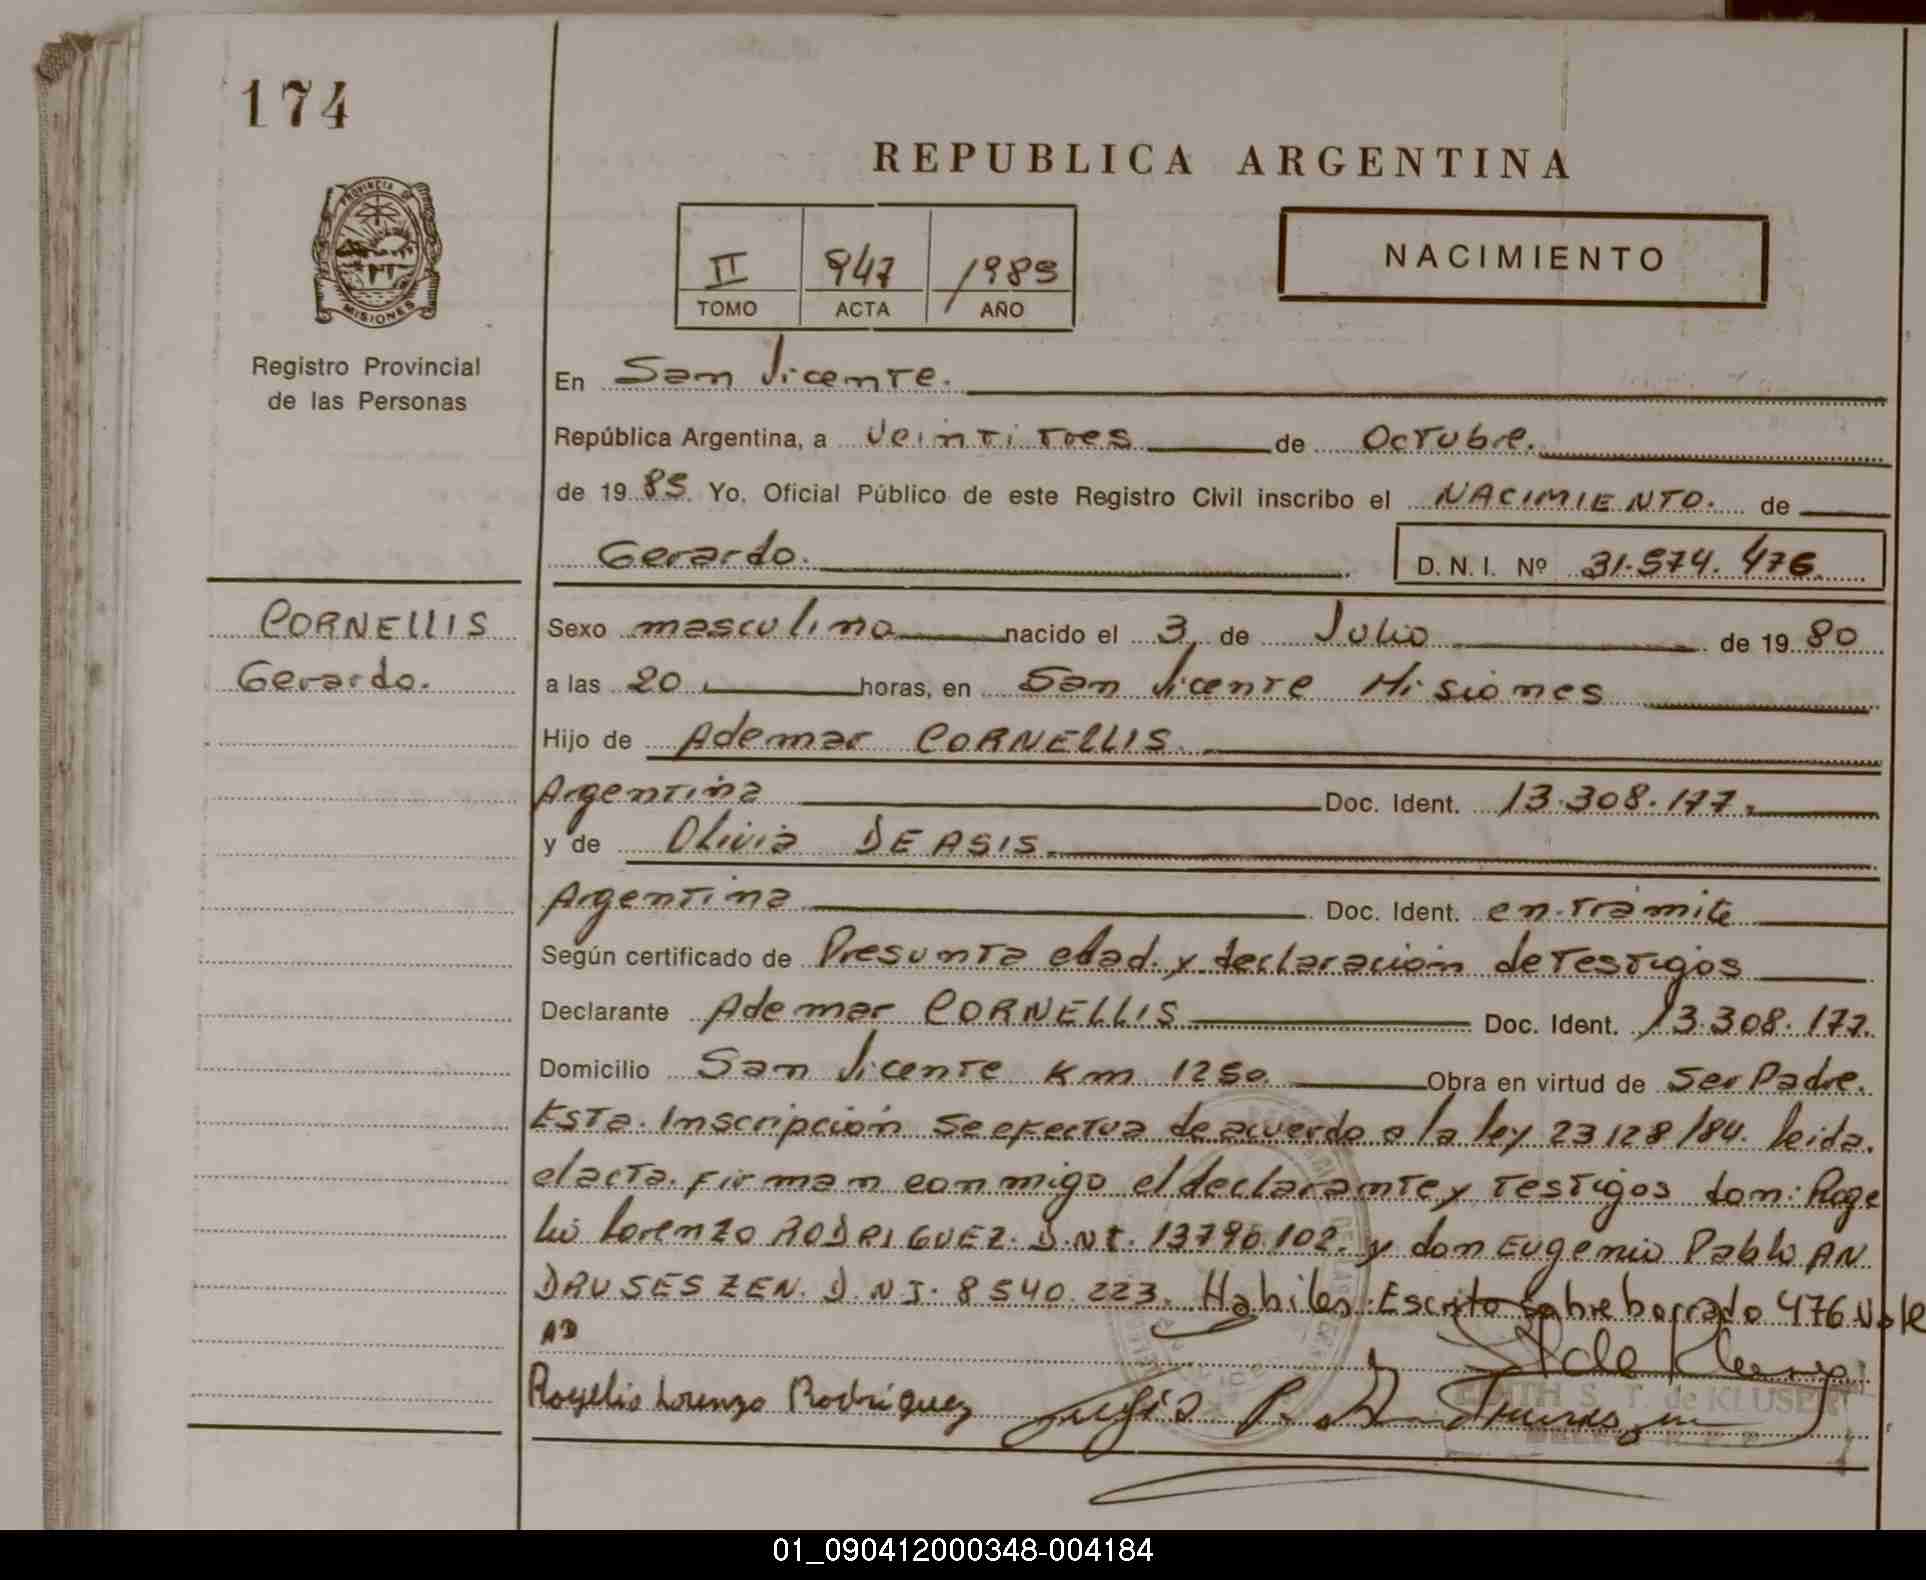 174
REPUBLICA ARGENTINA
PROVINCIA DE
MISIONES
II 947 1985
TOMO ACTA AÑO
NACIMIENTO
Registro Provincial
de las Personas
En San Vicente.
República Argentina, a veinti tres de Octubre.
de 19 85 Yo, Oficial Público de este Registro Civil inscribo el NACIMIENTO. de
Gerardo. D. N. I. Nº 31.574.476
CORNELLIS
Gerardo.
Sexo masculino nacido el 3 de Julio de 19 80
a las 20 horas, en San Vicente Misiones
Hijo de Ademar CORNELLIS.
Argentina Doc. Ident. 13.308.177.
y de Olivia DE ASIS.
Argentina Doc. Ident. en trámite
Según certificado de Presunta edad y declaración de Testigos
Declarante Ademar CORNELLIS Doc. Ident. 13.308.177.
Domicilio San Vicente Km 1250. Obra en virtud de Ser Padre.
Esta Inscripción se efectua de acuerdo a la ley 23128/84. leida
el acta. firman conmigo el declarante y Testigos don: Roge
lio Lorenzo RODRIGUEZ. D.N.I. 13796.102. y don Eugenio Pablo AN
DRUSESZEN. D.N.I. 8540.223. Habiles. Escrito sobre borrado 476 Vale
AD
Rogelio Lorenzo Rodríguez
EDITH S. T. de KLUSER
01_090412000348-004184